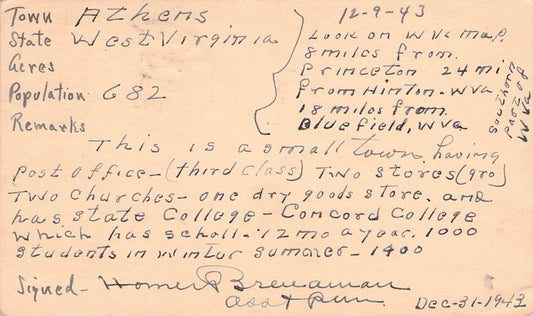 Town Athens
State West Virginia
Acres
Population 682
Remarks
12-9-43
Look on W Va Map.
8 miles from
Princeton 24 mi
from Hinton. W Va
18 miles from
Bluefield, W Va
Southern
part of
W Va
This is a small town, having
post office-(third class) Two stores (gro)
Two churches- one dry goods store. and
has State College - Concord College
which has scholl. 12 mo a year. 1000
students in winter summer- 1400
Signed- Homer Brenaman
asst p.m.
Dec-31-1943